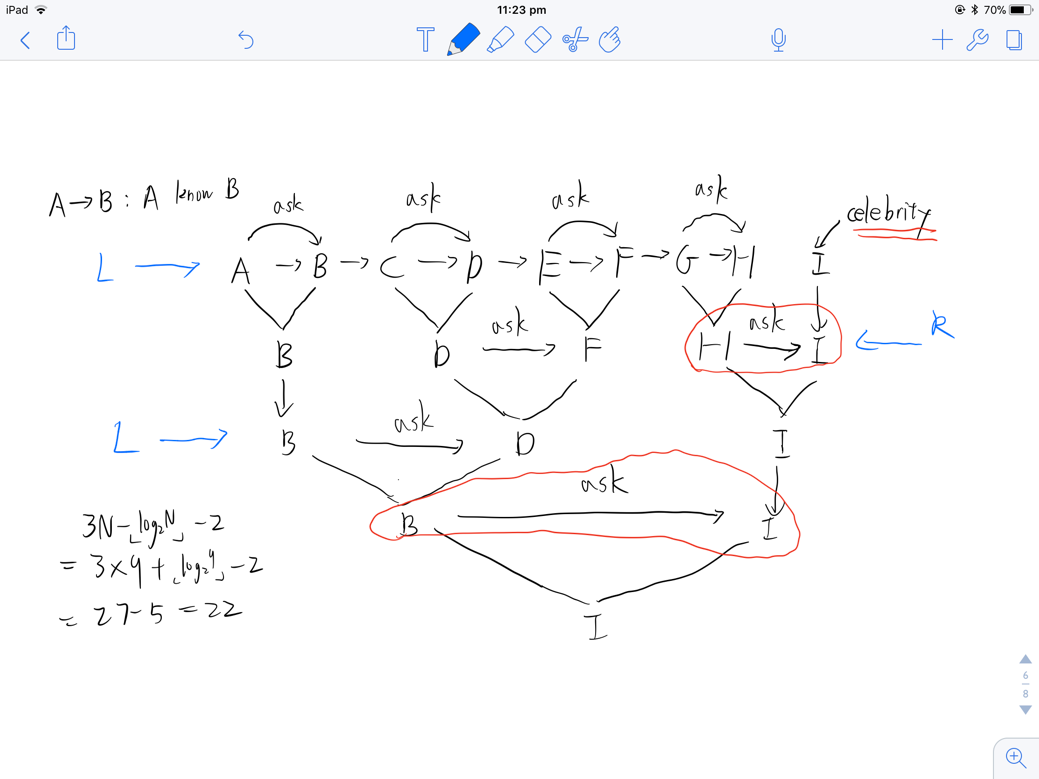 iPad 11:23 pm 70%
T
A→B : A know B
ask ask ask ask
celebrity
L → A → B → C → D → E → F → G → H I
B D ask F H ask I ← R
L → B ask D I
B ask I
I
3N-⌊log₂N⌋-2
= 3×9+⌊log₂9⌋-2
= 27-5 = 22
6
8